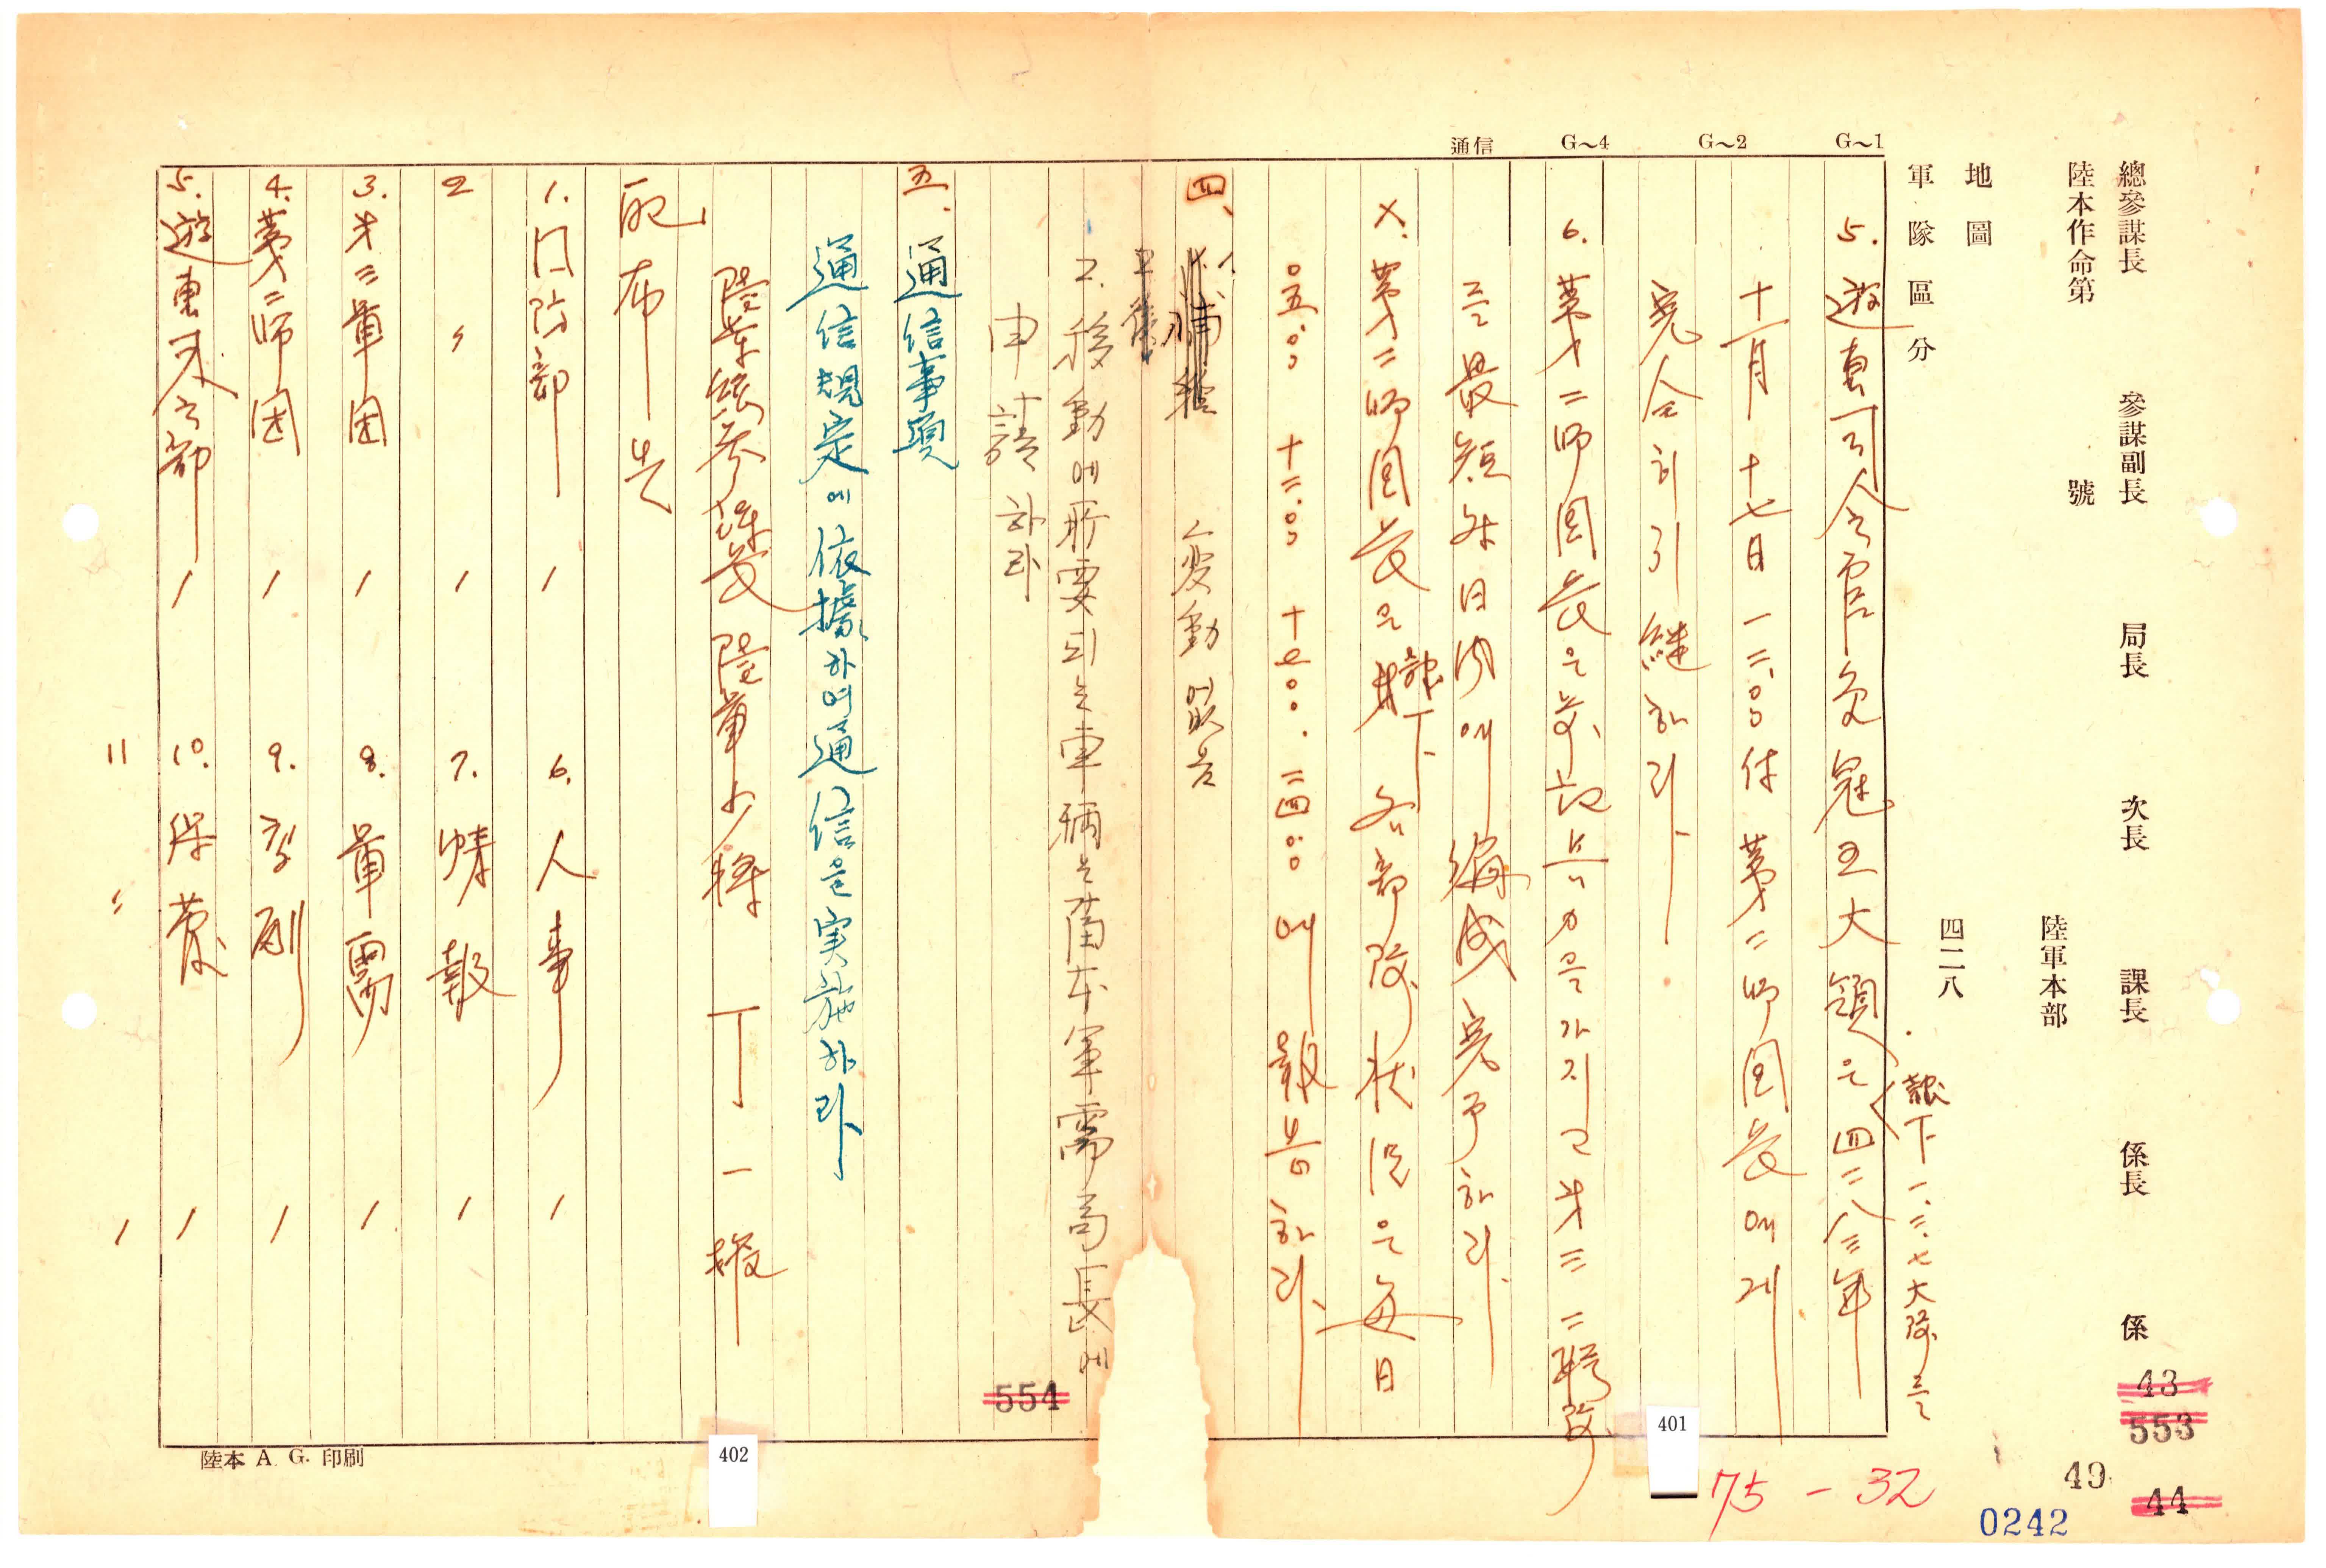 總參謀長 參謀副長 局長 次長 課長 係長 係
陸本作命第 號
陸軍本部
地圖
四二八
軍隊區分
隷下 一.二.七大隊는
G~1
G~2
G~4
通信
5. 遊東司令官 大領은 四二八三年
十一月十七日 一二:00付 第二師團長에게
完全히引継하라
6. 第二師團長은 前記兵力을 가지고 才三二聯隊
를 最短 日內에 編成完了하라
X. 第二師團長은 隷下 各部隊狀況은 每日
0五:00 十二:00 十七00. 二四:00에 報告하라
四、
変動없음
2. 移動에 所要되는 車輛은 陸本軍需局長에
申請하라
五. 通信事項
通信規定에 依據하여 通信을 実施하라
陸軍總參謀長 陸軍少將 丁一權
配布先
1. 国防部 1 6. 人事 1
2 〃 1 7. 情報 1
3. 才三軍團 1 8. 軍需 1
4. 第二師團 1 9. 高副 1
5. 遊東司令部 1 10. 保存 1
11 〃 1
陸本 A. G. 印刷
402
401
554
43
553
49
44
75-32
0242